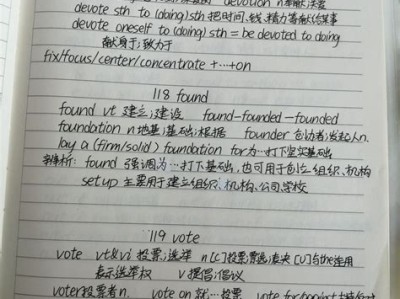 devotion n奉献;忠诚
devote sth to (doing) sth 把时间、钱、精力等献给某事
devote oneself to (doing) sth = be devoted to doing
献身于;致力于
fix/focus/center/concentrate +…+on
118 found
found vt 建立;建设 found-founded-founded
foundation n地基;基础;根据 founder 创办者;发起人n.
lay a (firm/solid) foundation for为…打下坚实基础
辨析: found 强调为…打下基础,也可用于创立组织、机构
set up 主要用于建立组织、机构、公司、学校
119 vote
vote vt&vi 投票;选举 n [C]投票;票;表决 [U]与the连用
表示选举权 v 提倡;倡议
voter投票者n. vote on 就…投票 vote for